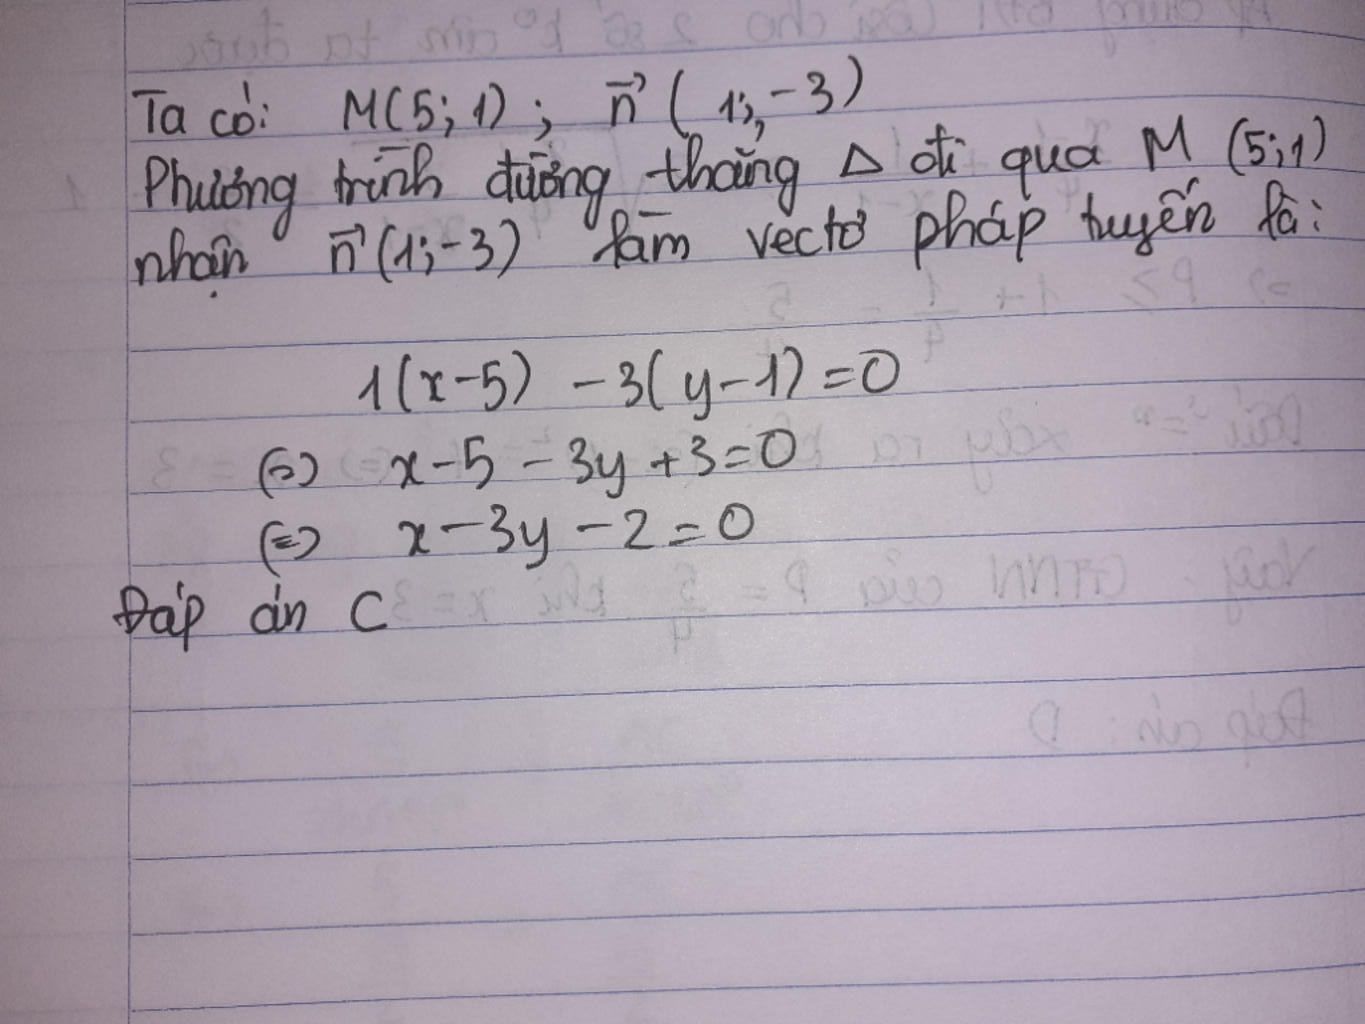 Ta có: M(5; 1); n⃗ (1; -3)
Phương trình đường thẳng Δ đi qua M (5; 1)
nhận n⃗ (1; -3) làm vectơ pháp tuyến là:
1(x-5) -3(y-1) =0
(=) x-5 -3y +3=0
(=) x-3y -2=0
Đáp án C